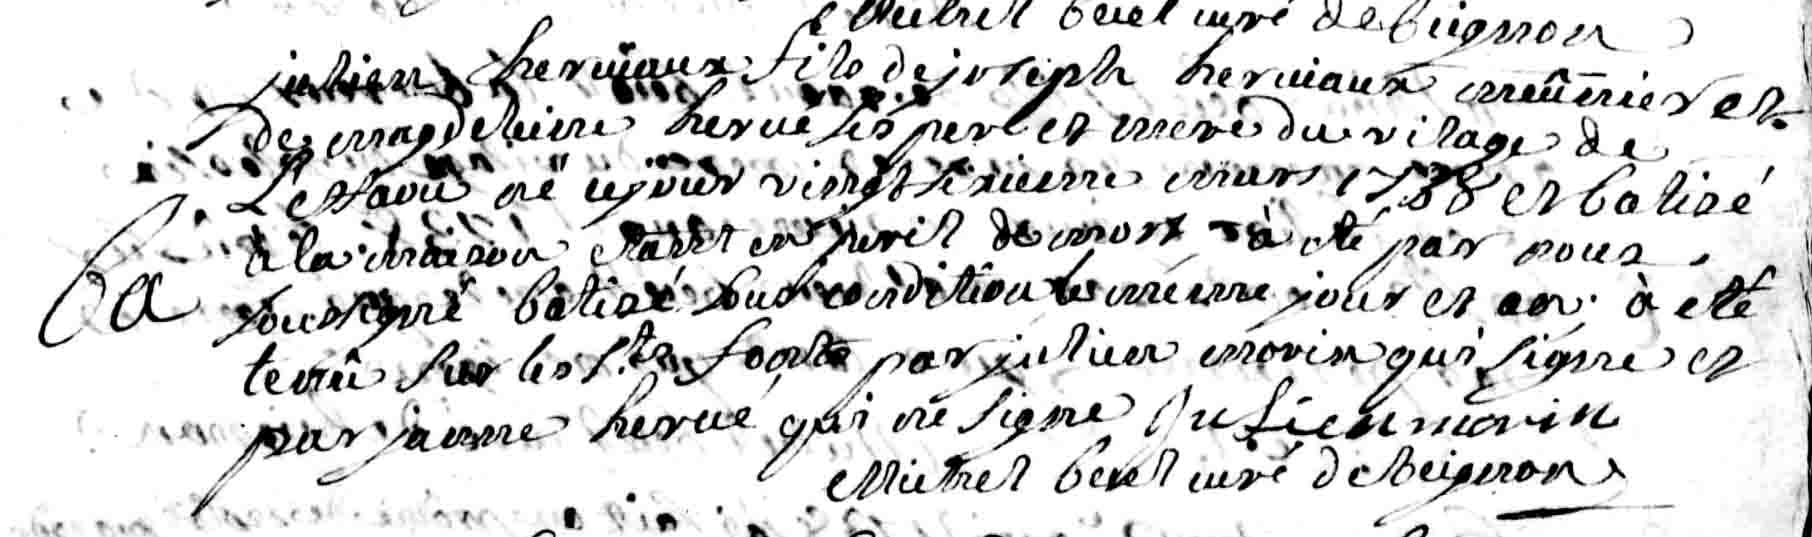 Michel beuel curé de beignon
julien herviaux fils de joseph herviaux meûnier et
de magdeleine hervé ses pere et mere du vilage de
né ce jour vingt sixieme mars 1738 et batizé
à la maison étant en peril de mort à été par nous
Ba
soussigné batizé sous condition le méme jour et an à eté
tenû sur les Sts fonts par julien morin qui signe et
par janne hervé qui ne signe Julien morin
Michel beuel curé de beignon